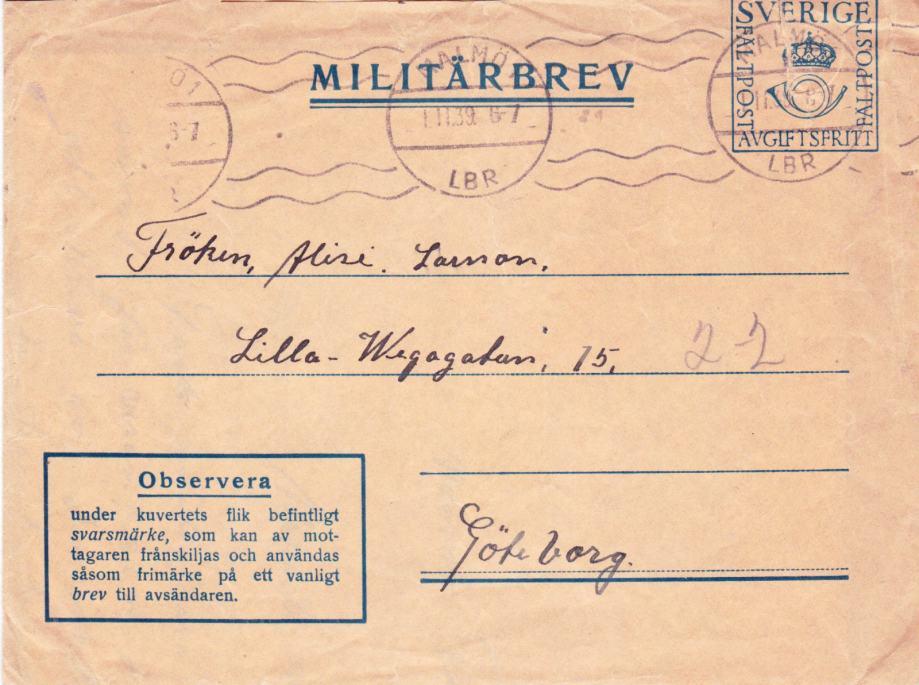 SVERIGE
FÄLTPOST
FÄLTPOST
AVGIFTSFRITT
MALMÖ 1
1.11.39. 6-7
LBR
MALMÖ
LBR
Ö1
6-7
MILITÄRBREV
Fröken, Alise. Larsson.
Lilla-Wegagatan, 15, 22
Göteborg.
Observera
under kuvertets flik befintligt
svarsmärke, som kan av mot-
tagaren frånskiljas och användas
såsom frimärke på ett vanligt
brev till avsändaren.